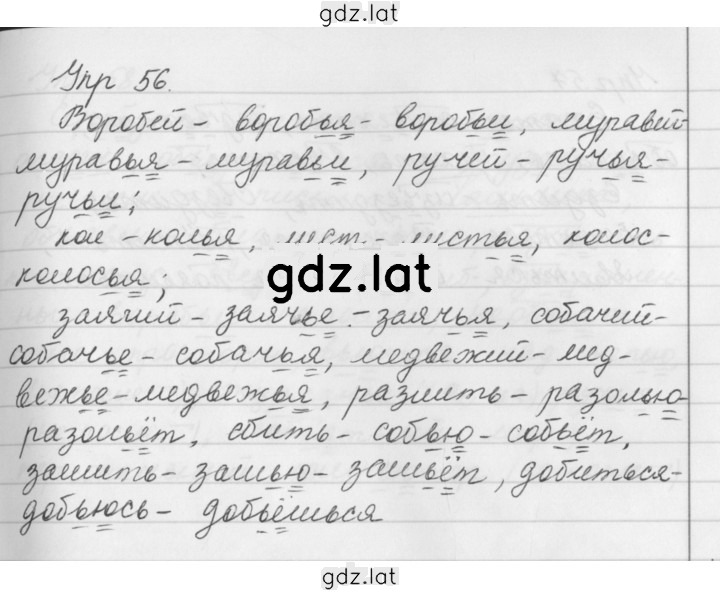 gdz.lat
Упр 56.
Воробей - воробья - воробьи, муравей-
муравья - муравьи, ручей - ручья -
ручьи;
кол - колья, лист - листья, колос-
колосья;
gdz.lat
заячий - заячье - заячья, собачий-
собачье - собачья, медвежий - мед-
вежье - медвежья, разлить - разолью
разольёт, сбить - собью - собьёт,
зашить - зашью - зашьёт, добиться-
добьюсь - добьёшься
gdz.lat